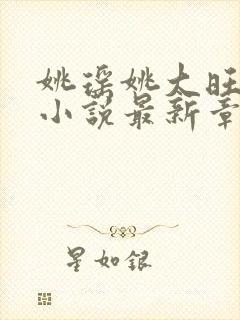 姚瑶姚太旺
小说最新章
星如银